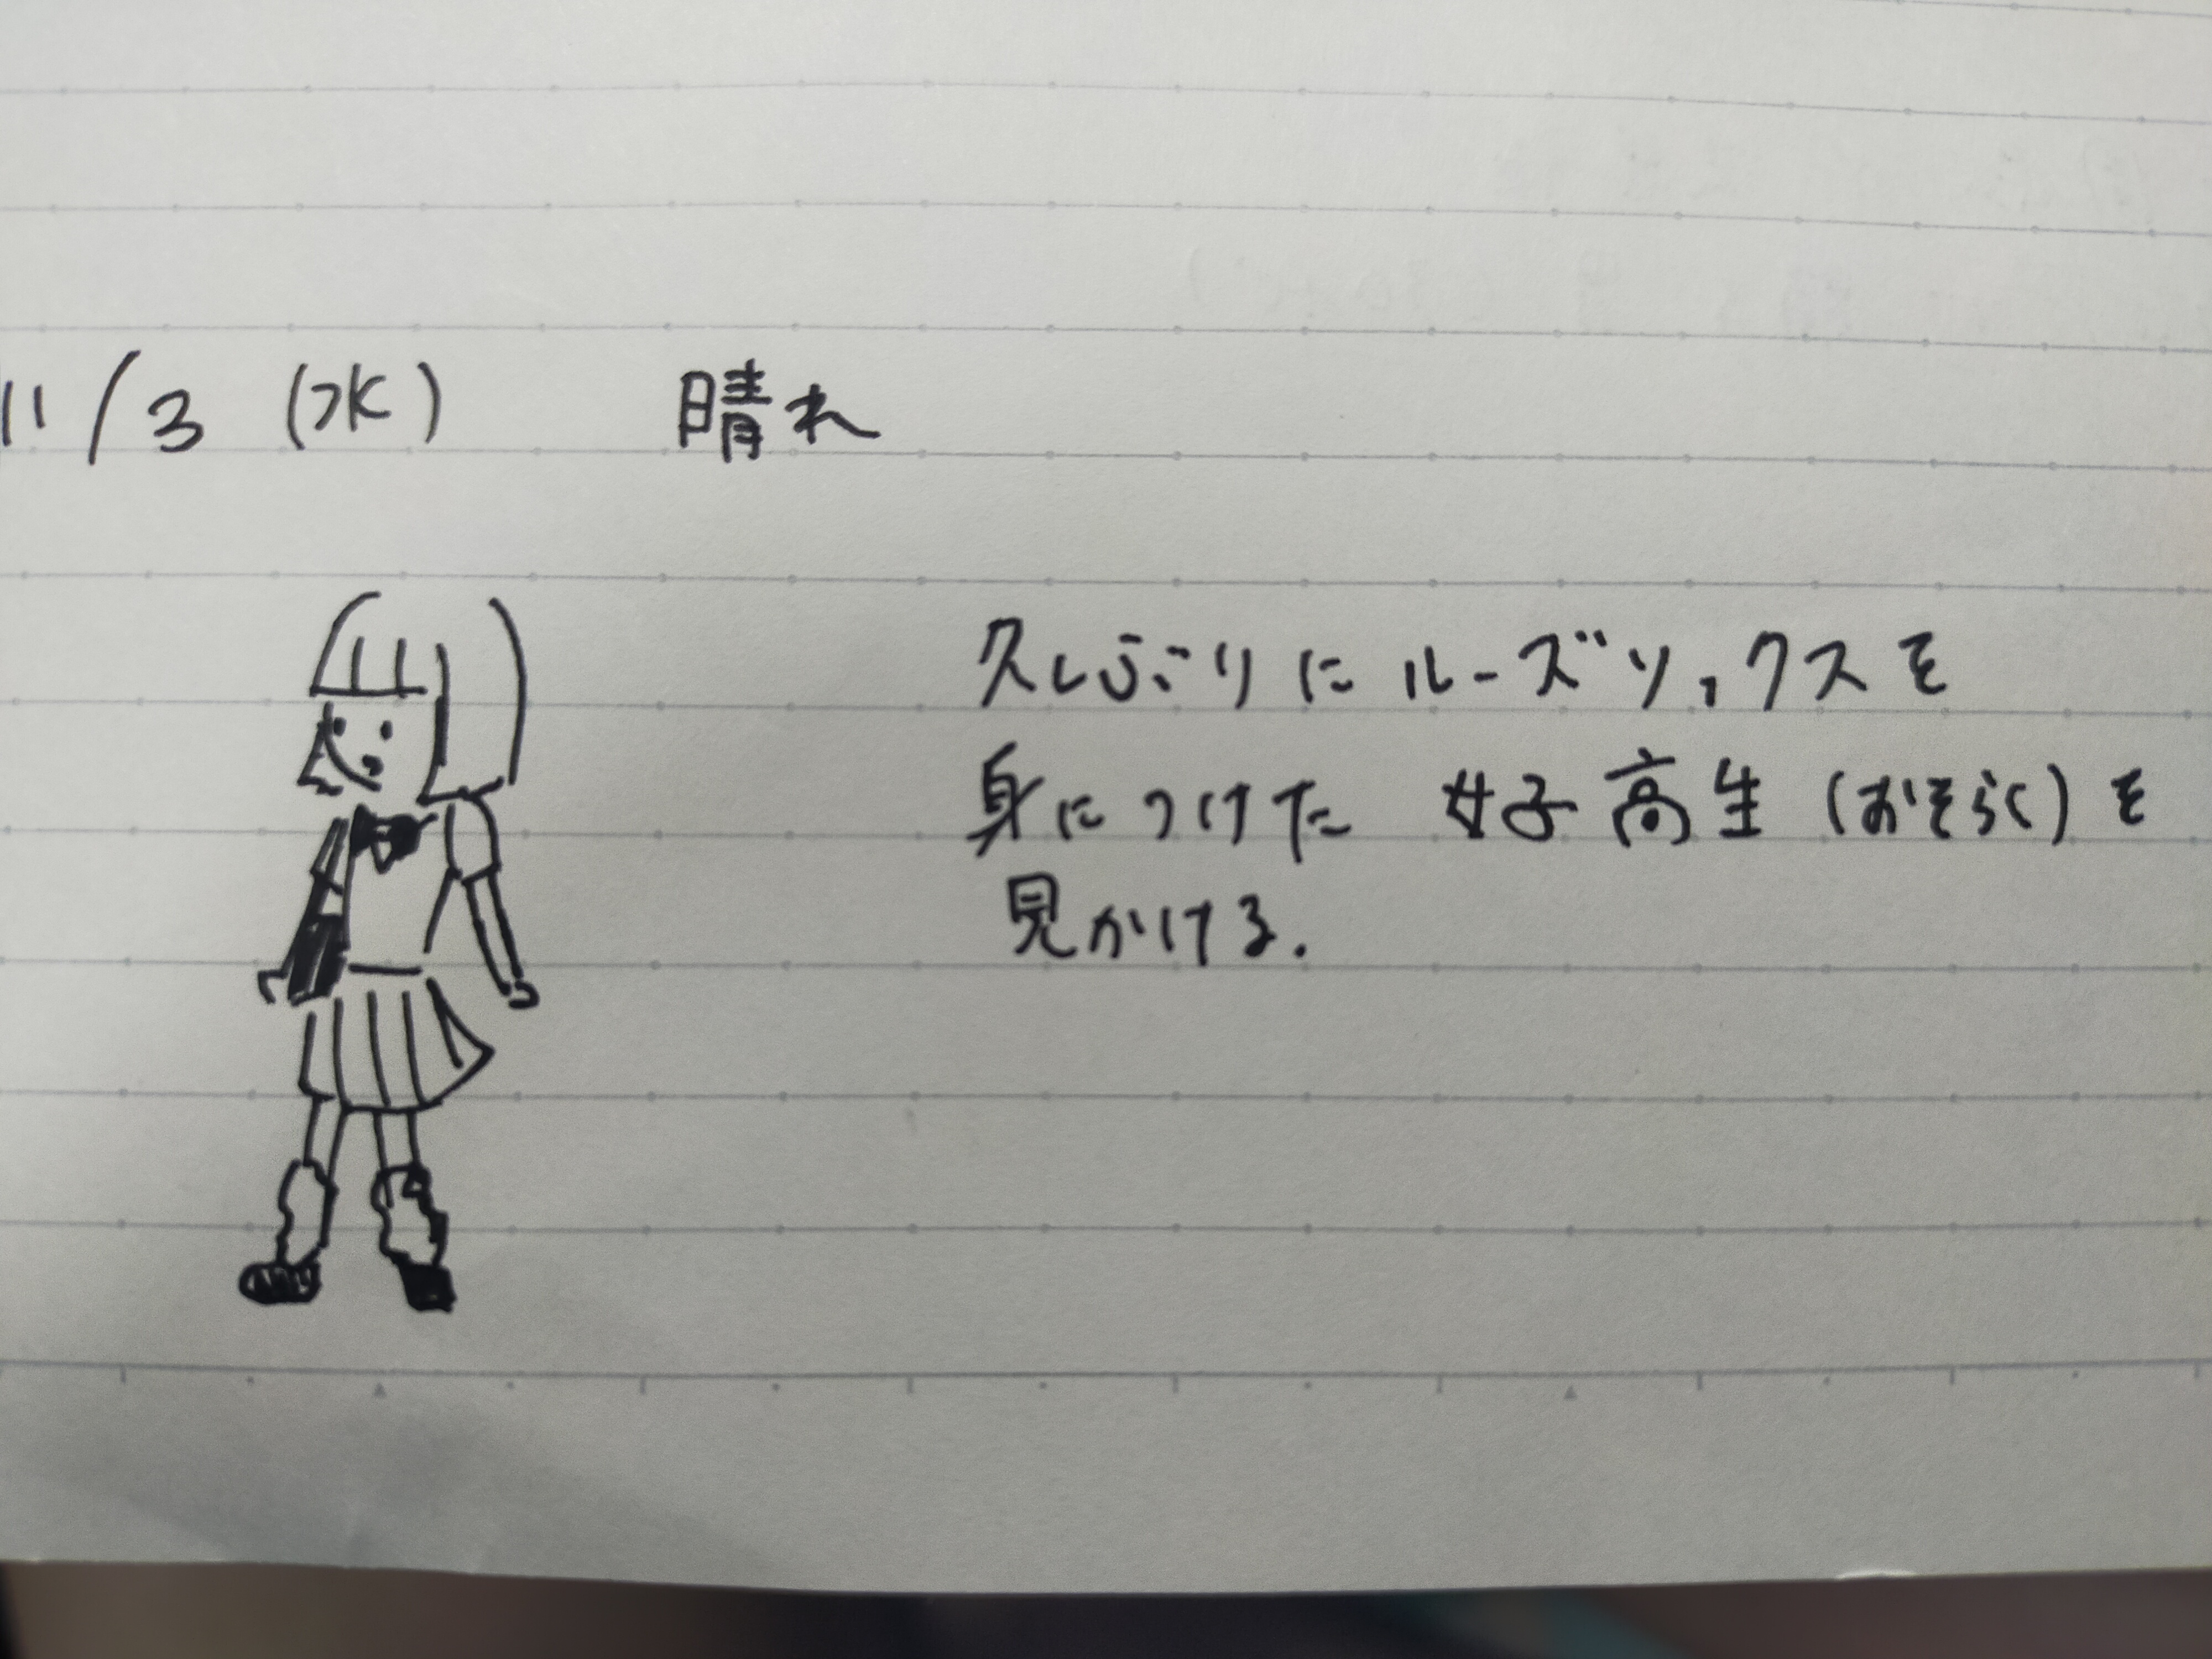 11/3 (水) 晴れ
久しぶりに ルーズソックスを
身につけた 女子高生 (おそらく) を
見かける.